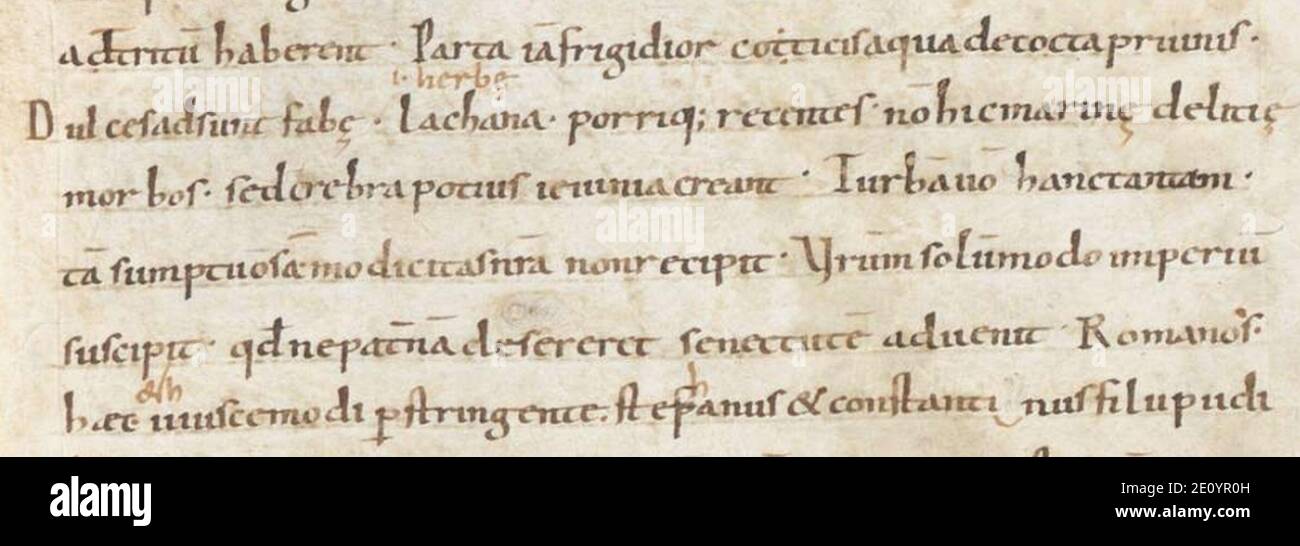 ad tritū haberent · Parta iā frigidior cocticis aqua decocta pruinis ·
.i. herbę
Dulces adsunt fabę · lachana · porriq; recentes · nō hic marinę delitię
morbos · sed crebra potius ieiunia creant · Turbā uō hanc tantam ·
tā sumptuosā modicitas nr̄a non recipit · Vrūm solūmodo imperiū
suscipit · qd̄ ne patnā desereret senectutē aduenit · Romanos ·
& h h
haec iuiuscemodi ꝑstringente · stepanus & constantinus filii pudi
alamy
Image ID: 2E0YR0H
www.alamy.com